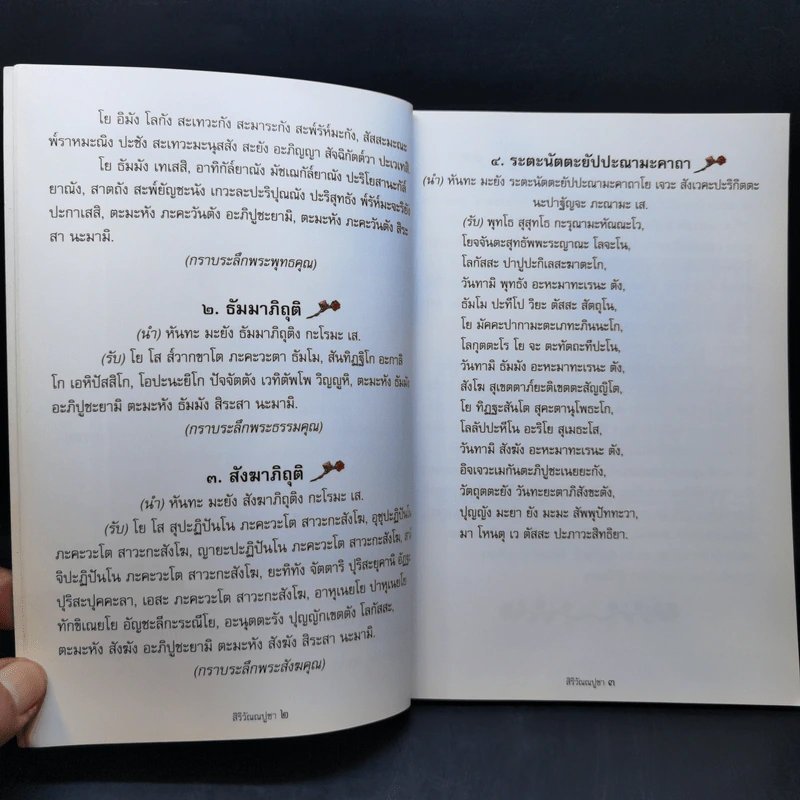 โย อิมัง โลกัง สะเทวะกัง สะมาระกัง สะพ๎รัห๎มะกัง, สัสสะมะณะ
พ๎ราหมะณิง ปะชัง สะเทวะมะนุสสัง สะยัง อะภิญญา สัจฉิกัต๎วา ปะเวเทสิ,
โย ธัมมัง เทเสสิ, อาทิกัล๎ยาณัง มัชเฌกัล๎ยาณัง ปะริโยสานะกัล๎
ยาณัง, สาตถัง สะพ๎ยัญชะนัง เกวะละปะริปุณณัง ปะริสุทธัง พ๎รัห๎มะจะริยัง
ปะกาเสสิ, ตะมะหัง ภะคะวันตัง อะภิปูชะยามิ, ตะมะหัง ภะคะวันตัง สิระ
สา นะมามิ.
(กราบระลึกพระพุทธคุณ)
๒. ธัมมาภิถุติ
(นำ) หันทะ มะยัง ธัมมาภิถุติง กะโรมะ เส.
(รับ) โย โส ส๎วากขาโต ภะคะวะตา ธัมโม, สันทิฏฐิโก อะกาลิ
โก เอหิปัสสิโก, โอปะนะยิโก ปัจจัตตัง เวทิตัพโพ วิญญูหิ, ตะมะหัง ธัมมัง
อะภิปูชะยามิ ตะมะหัง ธัมมัง สิระสา นะมามิ.
(กราบระลึกพระธรรมคุณ)
๓. สังฆาภิถุติ
(นำ) หันทะ มะยัง สังฆาภิถุติง กะโรมะ เส.
(รับ) โย โส สุปะฏิปันโน ภะคะวะโต สาวะกะสังโฆ, อุชุปะฏิปันโน
ภะคะวะโต สาวะกะสังโฆ, ญายะปะฏิปันโน ภะคะวะโต สาวะกะสังโฆ, สามี
จิปะฏิปันโน ภะคะวะโต สาวะกะสังโฆ, ยะทิทัง จัตตาริ ปุริสะยุคานิ อัฏฐะ
ปุริสะปุคคะลา, เอสะ ภะคะวะโต สาวะกะสังโฆ, อาหุเนยโย ปาหุเนยโย
ทักขิเณยโย อัญชะลีกะระณีโย, อะนุตตะรัง ปุญญักเขตตัง โลกัสสะ,
ตะมะหัง สังฆัง อะภิปูชะยามิ ตะมะหัง สังฆัง สิระสา นะมามิ.
(กราบระลึกพระสังฆคุณ)
สิริวัณณปูชา ๒
๔. ระตะนัตตะยัปปะณามะคาถา
(นำ) หันทะ มะยัง ระตะนัตตะยัปปะณามะคาถาโย เจวะ สังเวคะปะริกิตตะ
นะปาฐัญจะ ภะณามะ เส.
(รับ) พุทโธ สุสุทโธ กะรุณามะหัณณะโว,
โยจจันตะสุทธัพพะระญาณะ โลจะโน,
โลกัสสะ ปาปูปะกิเลสะฆาตะโก,
วันทามิ พุทธัง อะหะมาทะเรนะ ตัง,
ธัมโม ปะทีโป วิยะ ตัสสะ สัตถุโน,
โย มัคคะปากามะตะเภทะภินนะโก,
โลกุตตะโร โย จะ ตะทัตถะทีปะโน,
วันทามิ ธัมมัง อะหะมาทะเรนะ ตัง,
สังโฆ สุเขตตาภ๎ยะติเขตตะสัญญิโต,
โย ทิฏฐะสันโต สุคะตานุโพธะโก,
โลลัปปะหีโน อะริโย สุเมธะโส,
วันทามิ สังฆัง อะหะมาทะเรนะ ตัง,
อิจเจวะเมกันตะภิปูชะเนยยะกัง,
วัตถุตตะยัง วันทะยะตาภิสังขะตัง,
ปุญญัง มะยา ยัง มะมะ สัพพุปัททะวา,
มา โหนตุ เว ตัสสะ ปะภาวะสิทธิยา.
สิริวัณณปูชา ๓